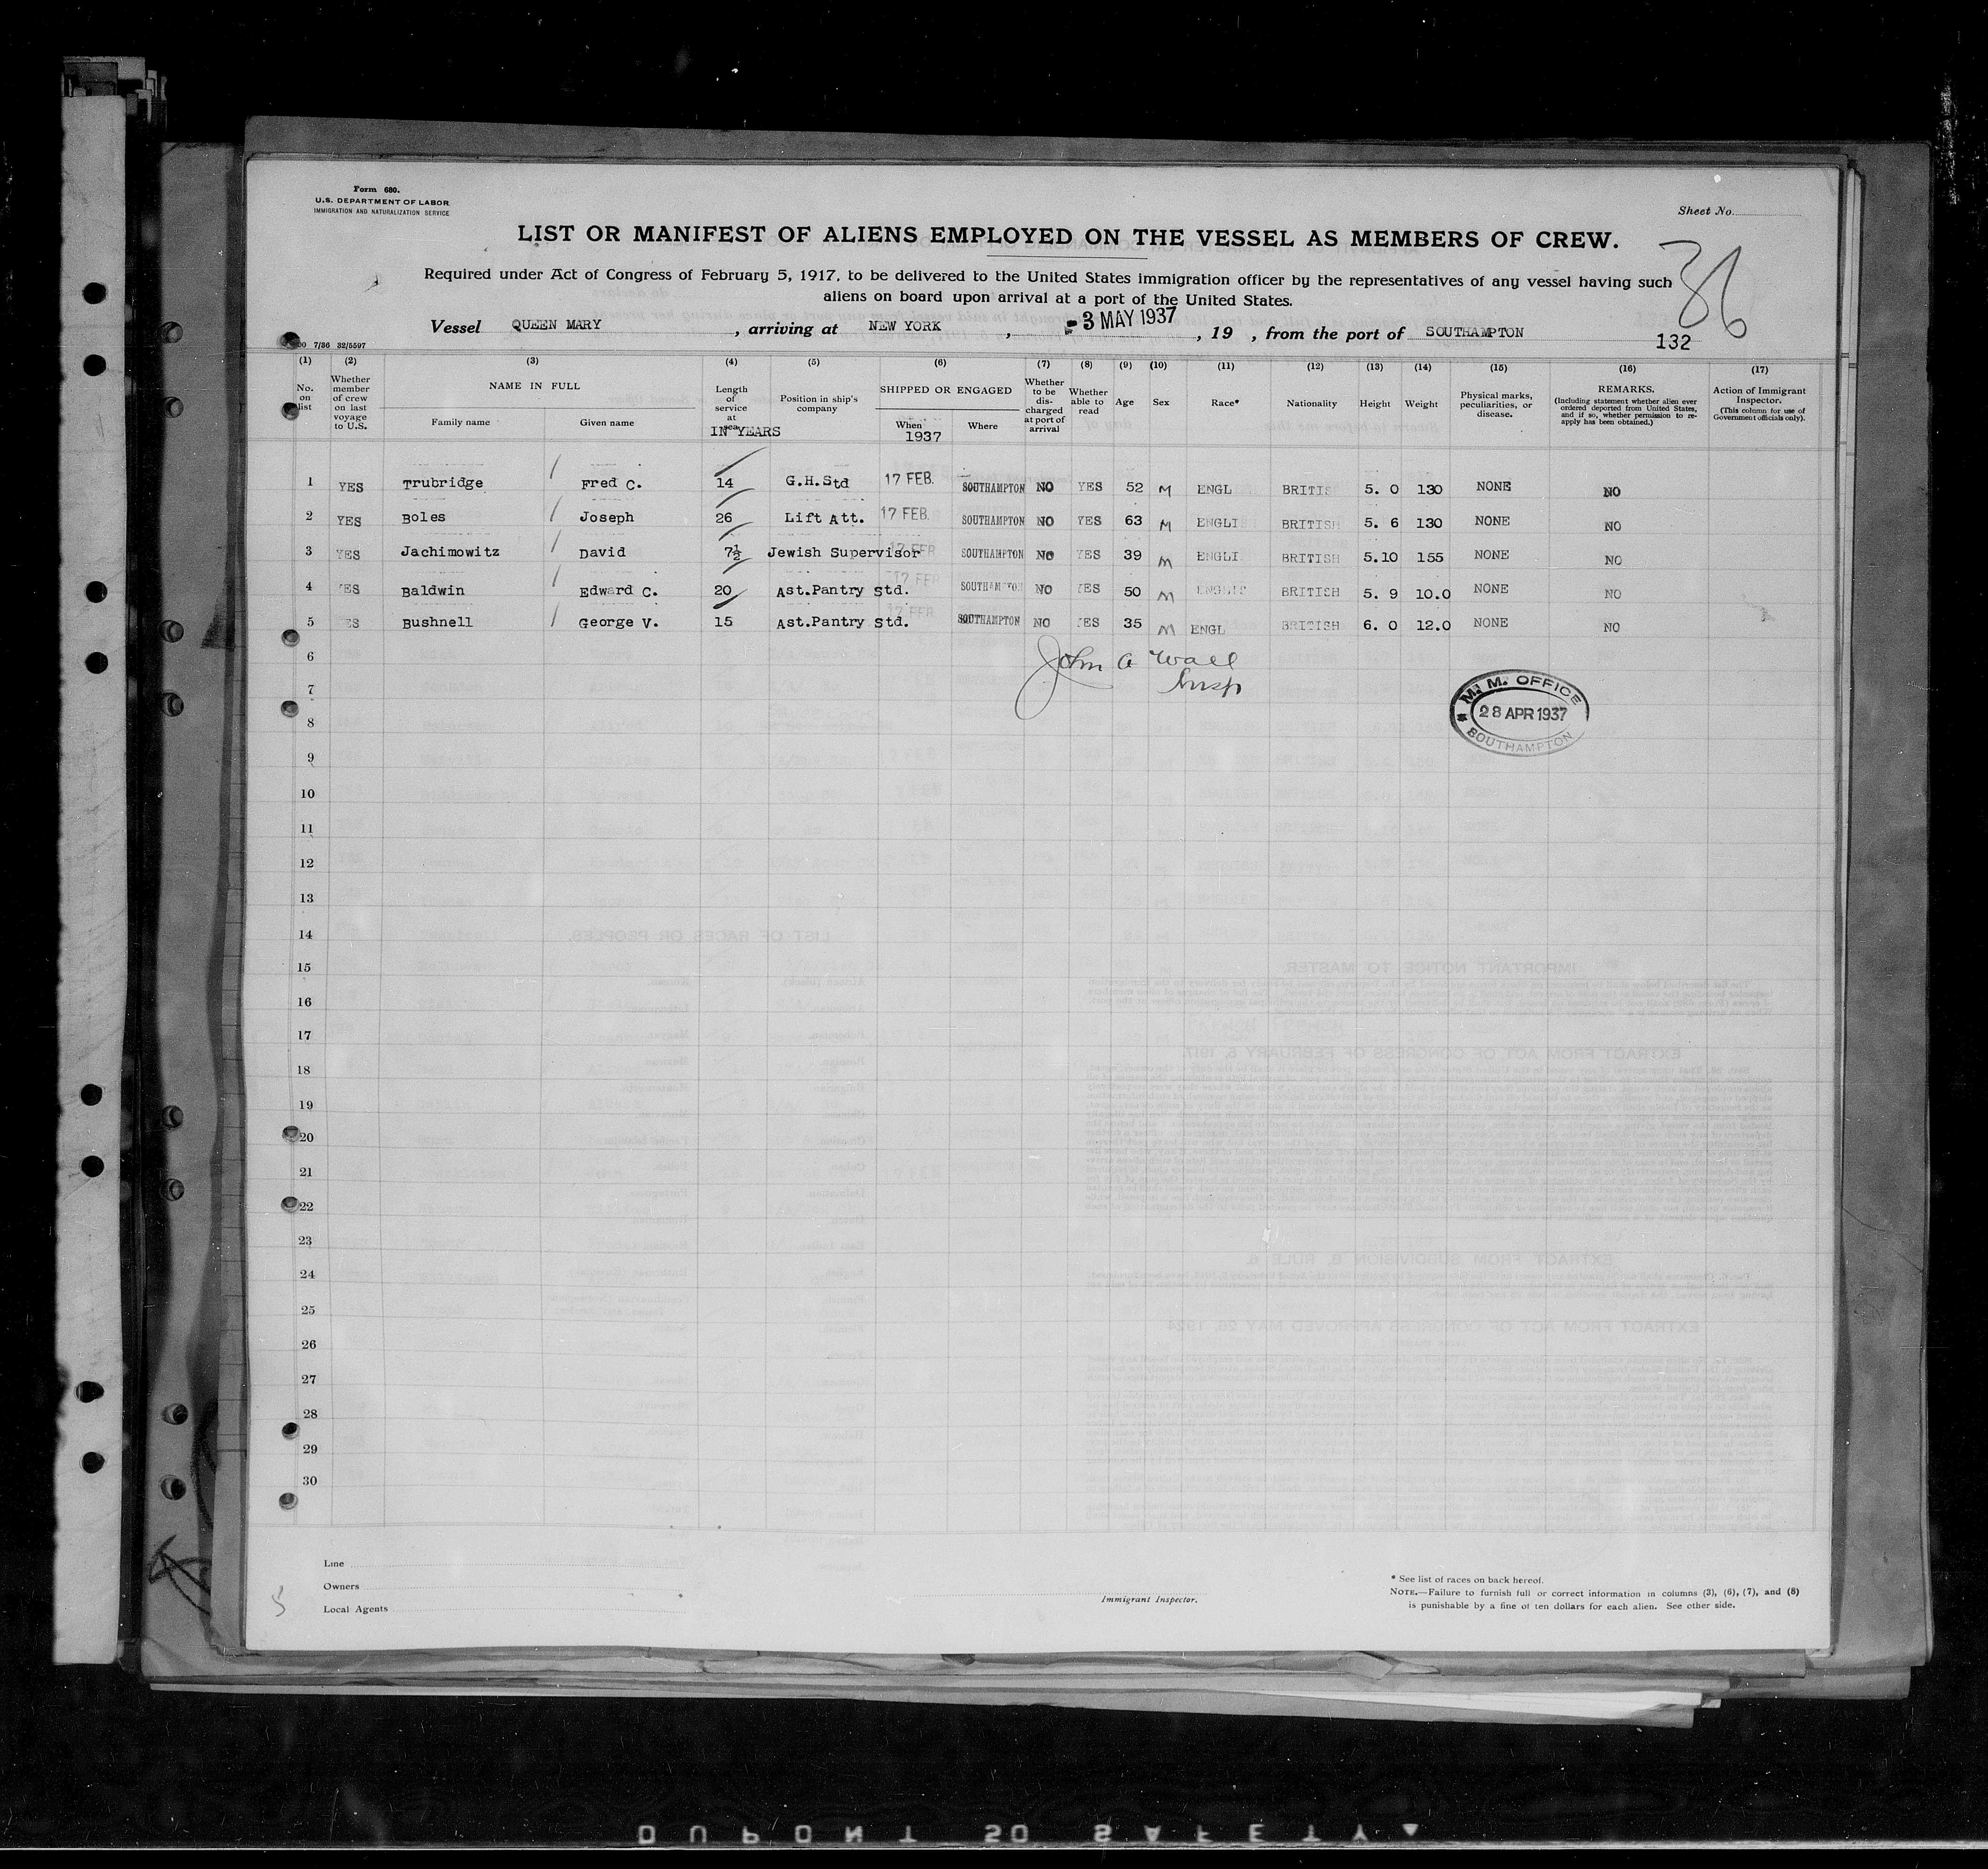 Form 680.
U.S. DEPARTMENT OF LABOR
IMMIGRATION AND NATURALIZATION SERVICE
Sheet No.
LIST OR MANIFEST OF ALIENS EMPLOYED ON THE VESSEL AS MEMBERS OF CREW.
36
Required under Act of Congress of February 5, 1917, to be delivered to the United States immigration officer by the representatives of any vessel having such
aliens on board upon arrival at a port of the United States.
Vessel QUEEN MARY, arriving at NEW YORK, - 3 MAY 1937, 19 , from the port of SOUTHAMPTON
132
7/36 32/5597
(1) (2) (3) (4) (5) (6) (7) (8) (9) (10) (11) (12) (13) (14) (15) (16) (17)
No. on list
Whether member of crew on last voyage to U.S.
NAME IN FULL
Family name
Given name
Length of service at sea
IN YEARS
Position in ship's company
SHIPPED OR ENGAGED
When
1937
Where
Whether to be discharged at port of arrival
Whether able to read
Age
Sex
Race*
Nationality
Height
Weight
Physical marks, peculiarities, or disease.
REMARKS.
(Including statement whether alien ever ordered deported from United States, and if so, whether permission to re-apply has been obtained.)
Action of Immigrant Inspector.
(This column for use of Government officials only).
1 YES Trubridge Fred C. 14 G.H.Std 17 FEB. SOUTHAMPTON NO YES 52 M ENGL BRITIS 5. 0 130 NONE NO
2 YES Boles Joseph 26 Lift Att. 17 FEB. SOUTHAMPTON NO YES 63 M ENGLI BRITISH 5. 6 130 NONE NO
3 YES Jachimowitz David 7½ Jewish Supervisor 17 FEB SOUTHAMPTON NO YES 39 M ENGLI BRITISH 5.10 155 NONE NO
4 YES Baldwin Edward C. 20 Ast.Pantry Std. 17 FEB SOUTHAMPTON NO YES 50 M ENGLIS BRITISH 5. 9 10.0 NONE NO
5 ES Bushnell George V. 15 Ast.Pantry Std. 17 FEB SOUTHAMPTON NO YES 35 M ENGL BRITISH 6. 0 12.0 NONE NO
6
John A Wall
Insp
7
M. M. OFFICE
28 APR 1937
SOUTHAMPTON
8
9
10
11
12
13
14
15
16
17
18
19
20
21
22
23
24
25
26
27
28
29
30
Line
Owners
Local Agents
5
Immigrant Inspector.
* See list of races on back hereof.
NOTE.—Failure to furnish full or correct information in columns (3), (6), (7), and (8)
is punishable by a fine of ten dollars for each alien. See other side.
DUPONT 50 SAFETY